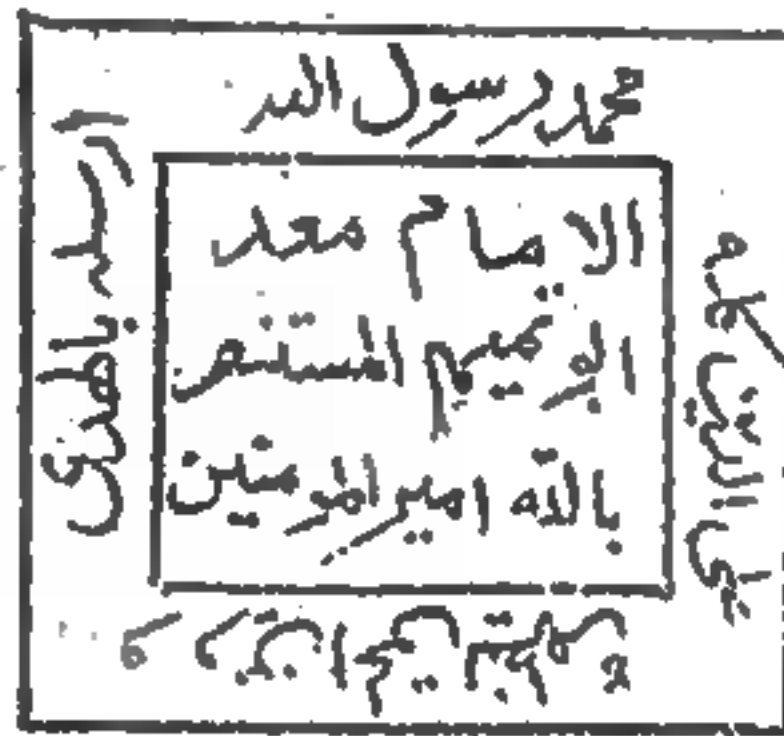 محمد رسول الله
ارسله بالهدى
على الدين كله
الامام معد
ابو تميم المستنصر
بالله امير المومنين